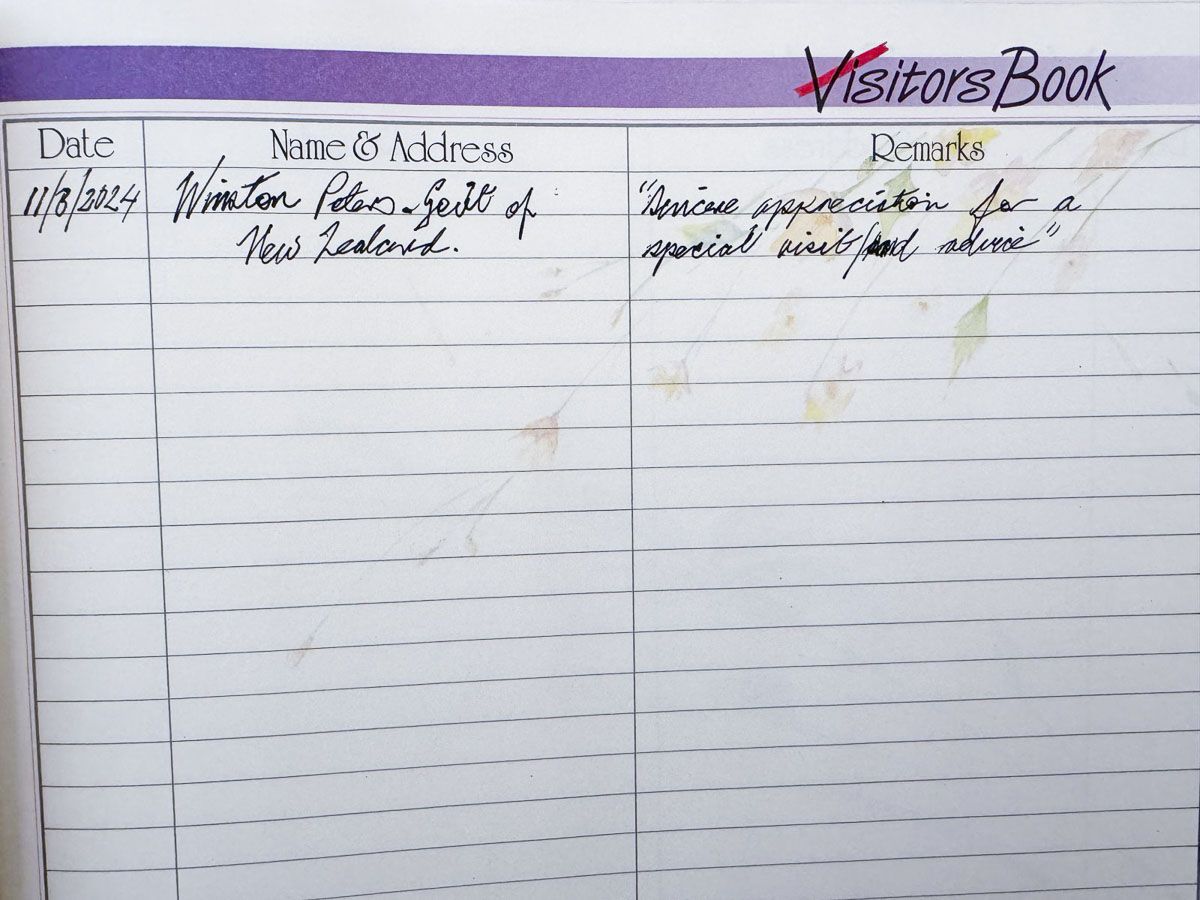 Visitors Book
Date Name & Address Remarks
11/3/2024 Winston Peters - Gov't of "Sincere appreciation for a
New Zealand. special visit/and advice"